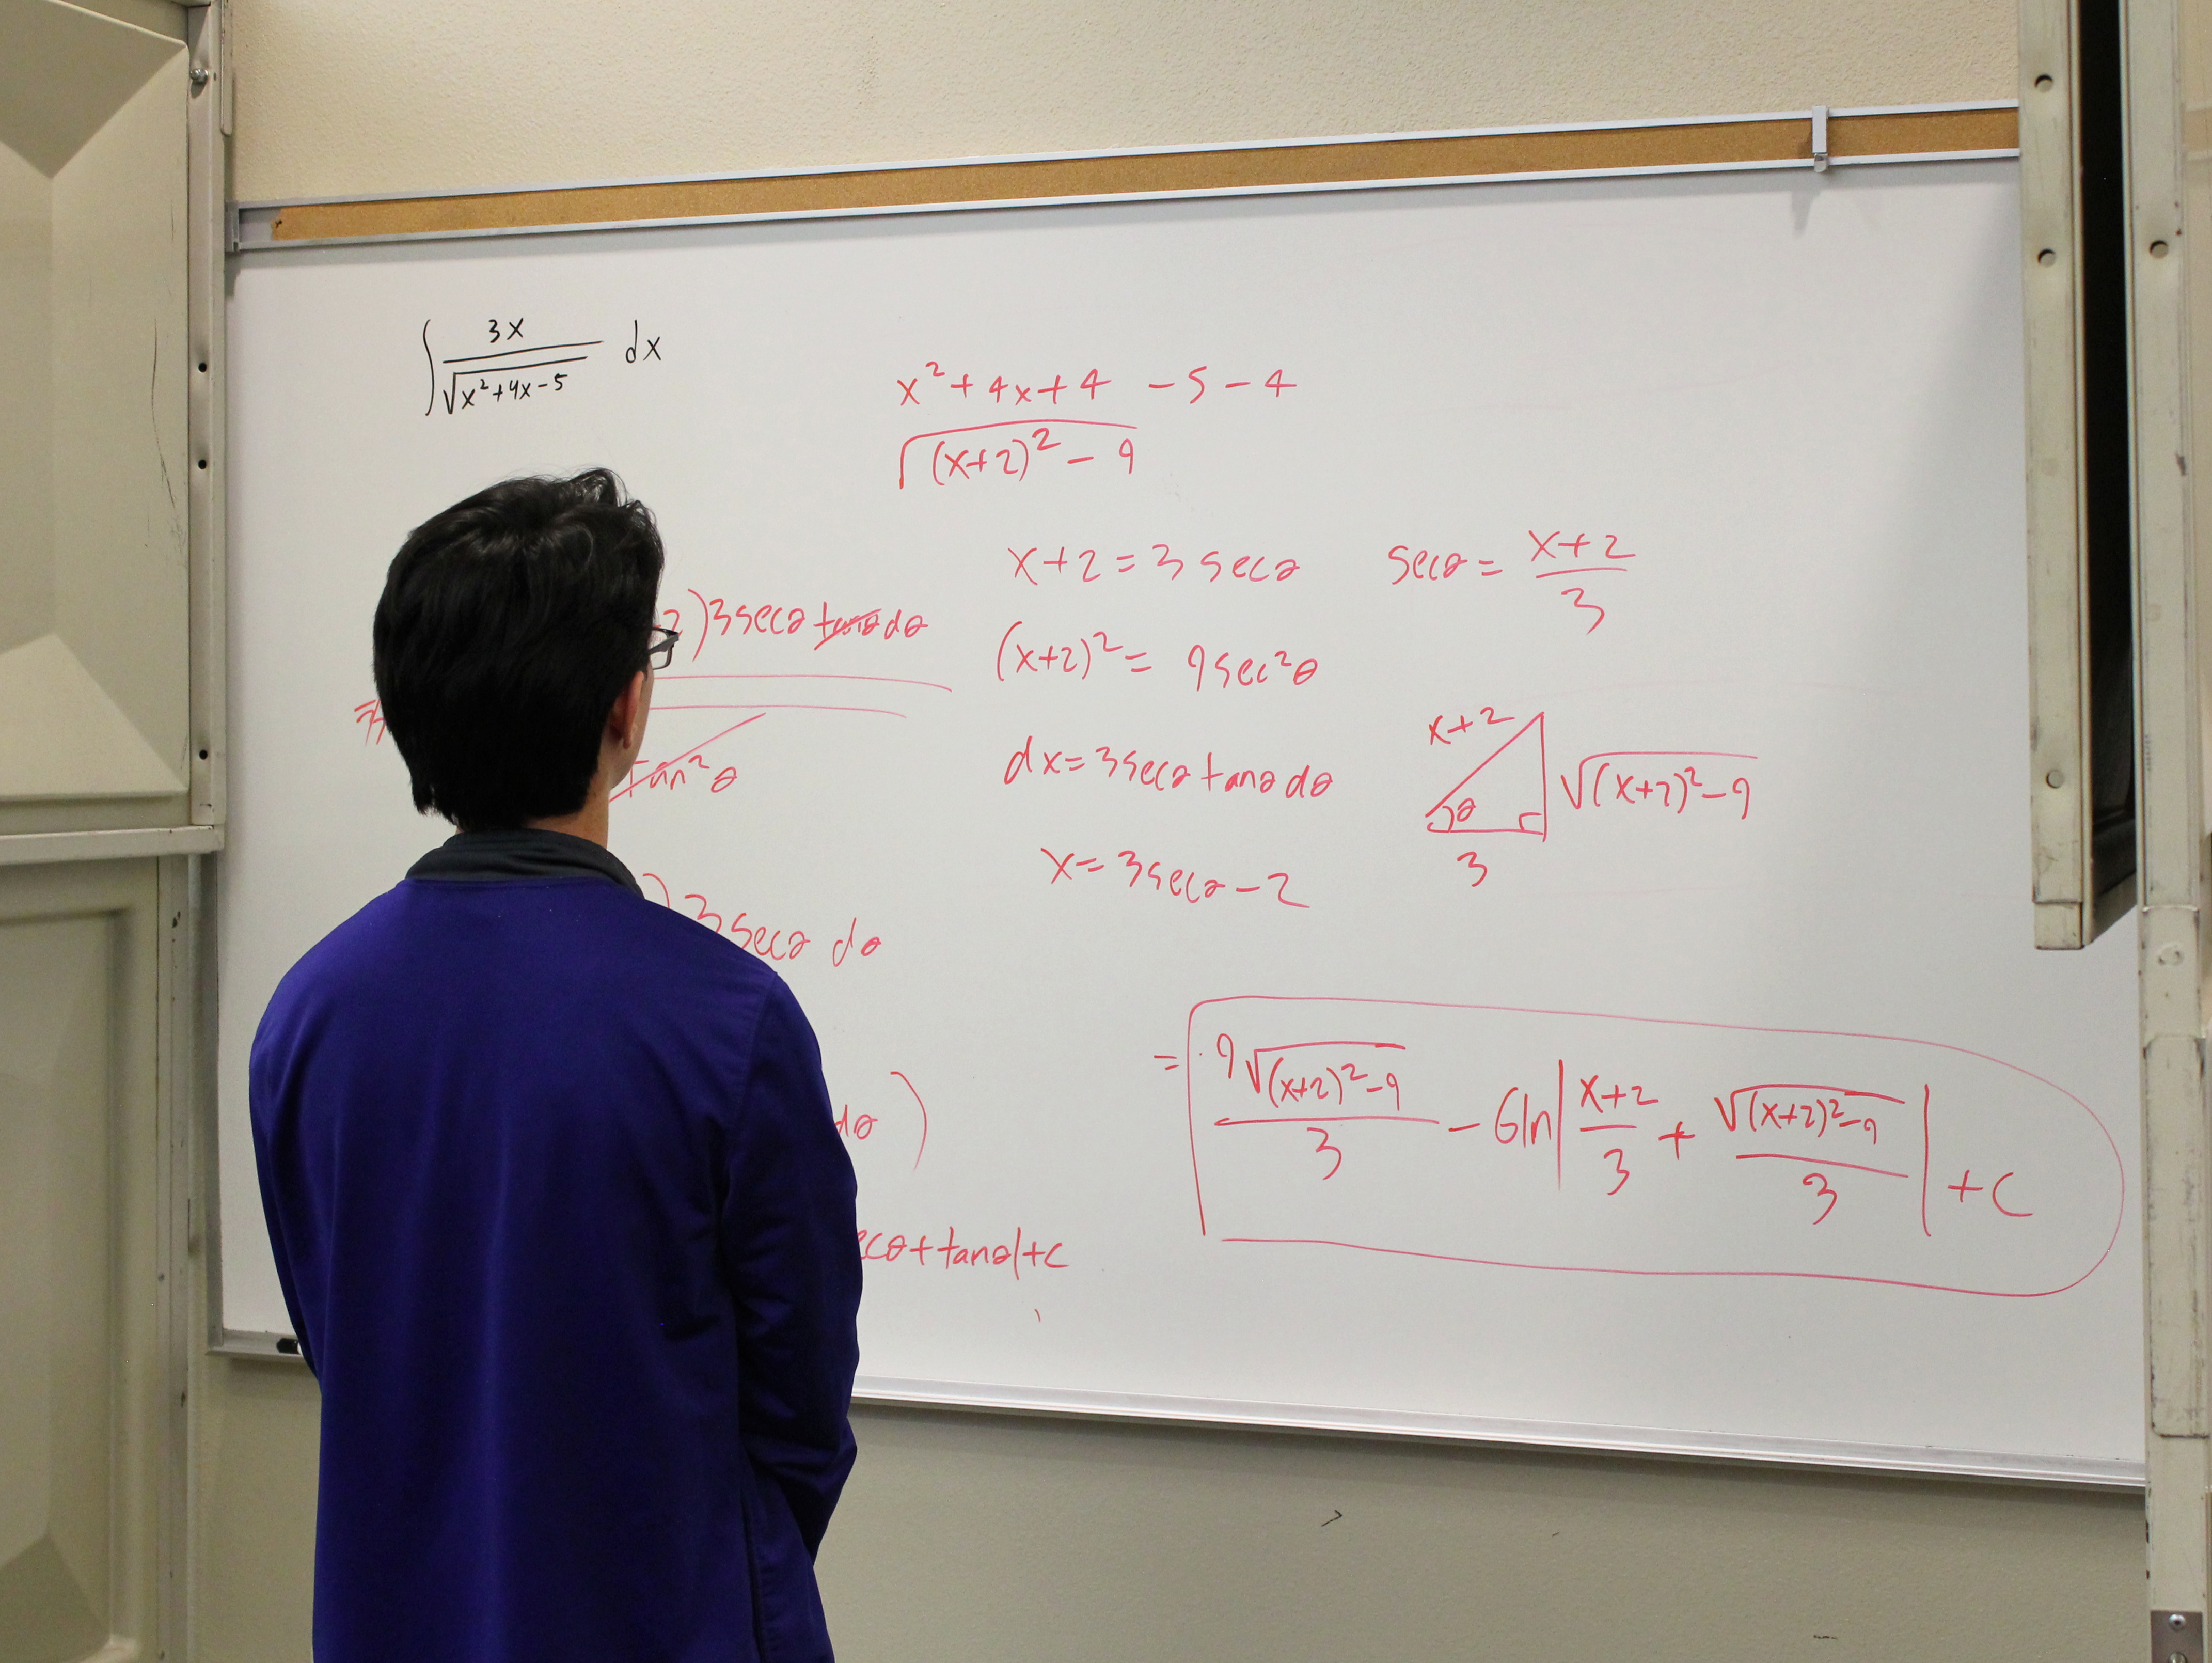 ∫ 3x / √(x²+4x-5) dx
x²+4x+4 -5-4
√((x+2)²-9)
x+2=3secθ
secθ= (x+2)/3
2)3secθ tanθ dθ
(x+2)²= 9sec²θ
tan²θ
dx=3secθ tanθ dθ
x+2
θ
√((x+2)²-9)
3
x=3secθ-2
)3secθ dθ
dθ )
= 9√((x+2)²-9) / 3 - 6ln| (x+2)/3 + √((x+2)²-9) / 3 | +c
ecθ+tanθ|+c